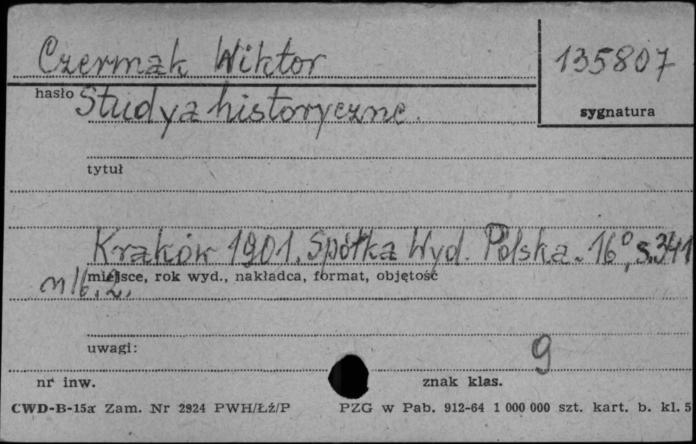 Czermak Wiktor
135807
hasło
Studya historyczne.
sygnatura
tytuł
Kraków 1901. Spółka Wyd. Polska. 16°, s. 341
miejsce, rok wyd., nakładca, format, objętość
nlb. 2.
uwagi:
9
nr inw.
znak klas.
CWD-B-15a Zam. Nr 2924 PWH/Łź/P
PZG w Pab. 912-64 1 000 000 szt. kart. b. kl. 5